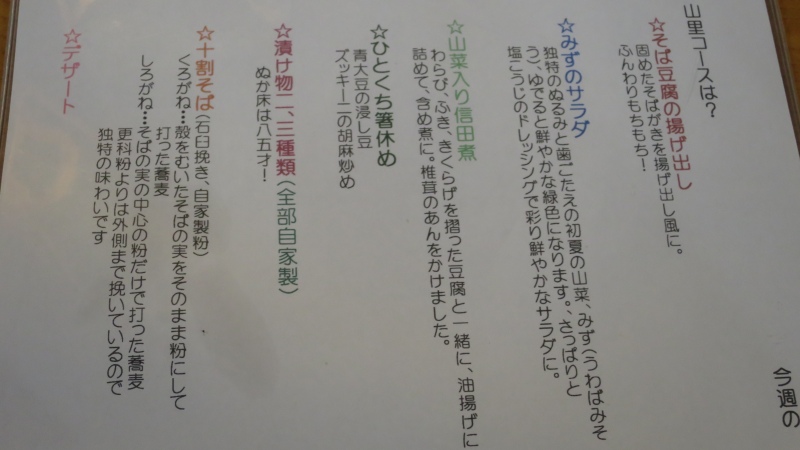 今週の
山里コースは?
☆そば豆腐の揚げ出し
固めたそばがきを揚げ出し風に。
ふんわりもちもち!
☆みずのサラダ
独特のぬるみと歯ごたえの初夏の山菜、みず(うわばみそ
う)、ゆでると鮮やかな緑色になります。、さっぱりと
塩こうじのドレッシングで彩り鮮やかなサラダに。
☆山菜入り信田煮
わらび、ふき、きくらげを摺った豆腐と一緒に、油揚げに
詰めて、含め煮に。椎茸のあんをかけました。
☆ひとくち箸休め
青大豆の浸し豆
ズッキーニの胡麻炒め
☆漬け物二、三種類(全部自家製)
ぬか床は八五才!
☆十割そば(石臼挽き、自家製粉)
くろがね…殻をむいたそばの実をそのまま粉にして
打った蕎麦
しろがね…そばの実の中心の粉だけで打った蕎麦
更科粉よりは外側まで挽いているので
独特の味わいです
☆デザート